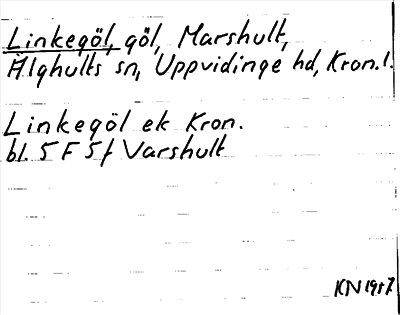 Linkegöl, göl, Marshult,
Älghults sn, Uppvidinge hd, Kron.l.
Linkegöl ek Kron.
bl. 5 F 5f Varshult
KN 1957